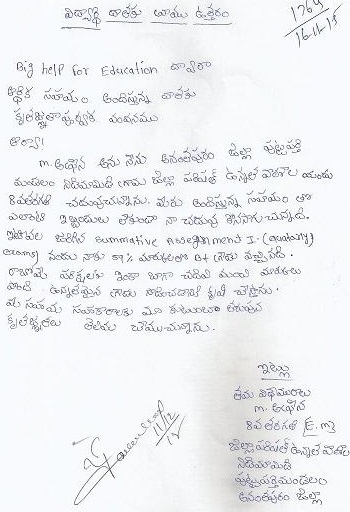 విద్యార్థి దాతకు వ్రాయు ఉత్తరం
1764
16-12-15
Big help For Education ద్వారా
ఆర్థిక సహాయం అందిస్తున్న దాతకు
కృతజ్ఞతాపూర్వక వందనము
ఆర్యా!
M. అను నేను అనంతపురం జిల్లా పుట్టపర్తి
మండలం నిడిమామిడి గ్రామ జిల్లా పరిషత్ ఉన్నత పాఠశాల యందు
8వతరగతి చదువుచున్నాను. మీరు అందిస్తున్న సహాయం తో
ఎలాంటి ఇబ్బందులు లేకుండా నా చదువు కొనసాగుచున్నది.
ఇటీవల జరిగిన Summative Assessment I. (quaterly
exams) నందు నాకు మార్కులతో గ్రేడు వచ్చినది.
రాబోవు పరీక్షలకు ఇంకా బాగా చదివి మంచి మార్కులు
పొంది ఉన్నతమైన గ్రేడు సాధించడానికి కృషి చేస్తాను.
మీ సహాయ సహకారాలకు మా కుటుంబం తరుపున
కృతజ్ఞతలు తెలియ చేయుచున్నాను.
ఇట్లు
తమ విధేయురాలు
M.
8వ తరగతి [E.M]
జిల్లా పరిషత్ ఉన్నత పాఠశాల
నిడిమామిడి
పుట్టపర్తి మండలం
అనంతపురం జిల్లా